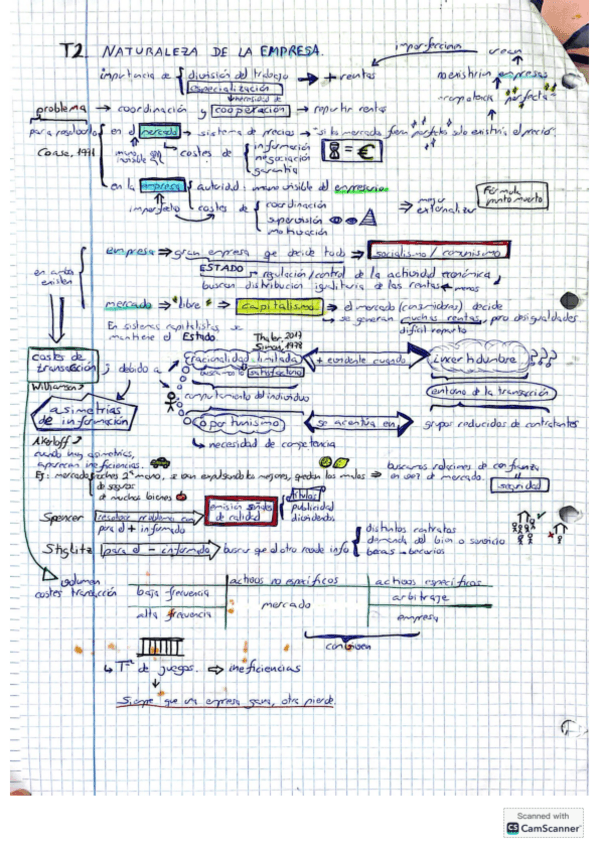 T2 NATURALEZA DE LA EMPRESA.
imperfección → crean
importancia de división del trabajo → + rentas no existirían empresas
especialización
necesidad de competencia perfecta
problema → coordinación y cooperación → repartir rentas
para resolverlo en el mercado → sistema de precios → si los mercados fueran perfectos solo existiría el precio.
Coase, mano invisible costes de información
negociación = €
garantía
en la empresa autoridad: mano visible del empresario Fórmula punto muerto
imperfecto costes de coordinación → mejor externalizar
supervisión
motivación
empresa → gran empresa que decide todo → socialismo / comunismo
ESTADO → regulación/control de la actividad económica,
en ambos existen buscan distribución igualitaria de las rentas → menos
mercado → "libre" → capitalismo → el mercado (consumidores) decide
se generan muchas rentas, pero desigualdades
En sistemas capitalistas se mantiene el Estado. difícil reparto
Thaler, 2017
Simon, 1978
costes de transacción; debido a racionalidad limitada + evidente cuando incertidumbre ???
satisfactorio
Williamson
comportamiento del individuo entorno de la transacción
asimetrías de información
oportunismo se acentúa en grupos reducidos de contratantes
Akerloff → necesidad de competencia
cuando hay asimetrías, aparecen ineficiencias. buscamos relaciones de confianza en vez de mercado.
Ej: mercado coches 2ª mano, se van expulsando los mejores, quedan los malos
de seguros seguridad
de muchos bienes
Spencer resolver problema con emisión señales de calidad títulos
para el + informado publicidad
dividendos
Stiglitz para el - informado buscar que el otro mande info distintos contratos
demanda del bien o servicio
becas → becarios
volumen costes transacción activos no específicos activos específicos
baja frecuencia mercado arbitraje
alta frecuencia empresa
conviven
Tª de juegos. → ineficiencias
Siempre que una empresa gana, otra pierde.
Scanned with
CS CamScanner